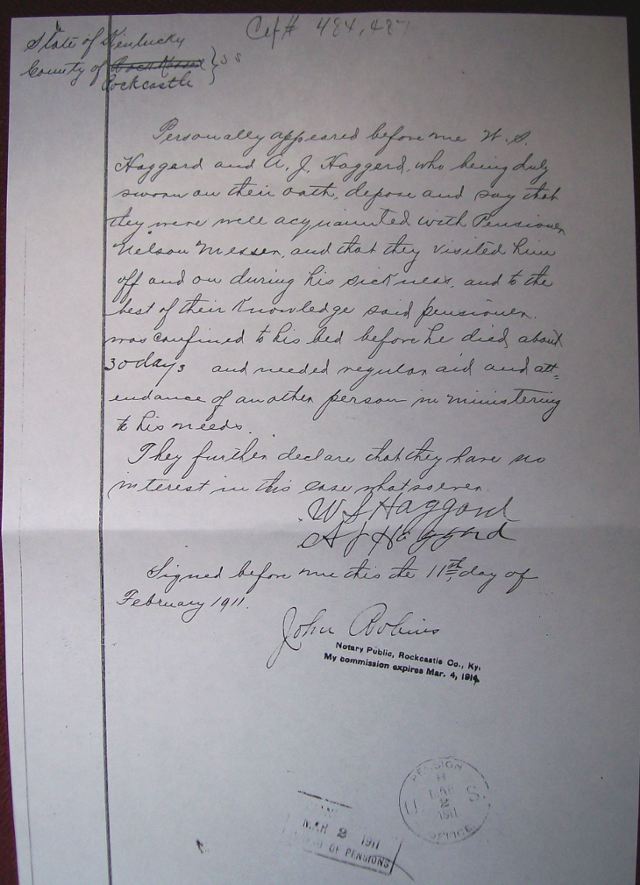 Cef# 484,487
State of Kentucky
County of Rockcastle } SS
Personally appeared before me W. S.
Haggard and A. J. Haggard, who being duly
sworn on their oath, depose and say that
they were well acquainted with Pensioner,
Nelson Messer, and that they visited him
off and on during his sickness, and to the
best of their knowledge said pensioner
was confined to his bed before he died, about
30 days and needed regular aid and att-
endance of another person in ministering
to his needs.
They further declare that they have no
interest in this case whatsoever.
W S Haggard
A J Haggard
Signed before me this the 11th day of
February 1911.
John Robins
Notary Public, Rockcastle Co., Ky.
My commission expires Mar. 4, 1914
PENSION
U S
MAR
2
1911
OFFICE
MAR 2 1911
OF PENSIONS